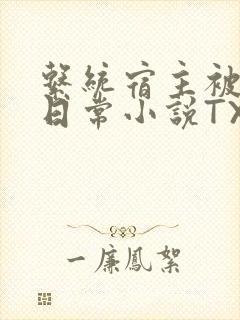 繫統宿主被
日常小說TX
一廉鳳絮